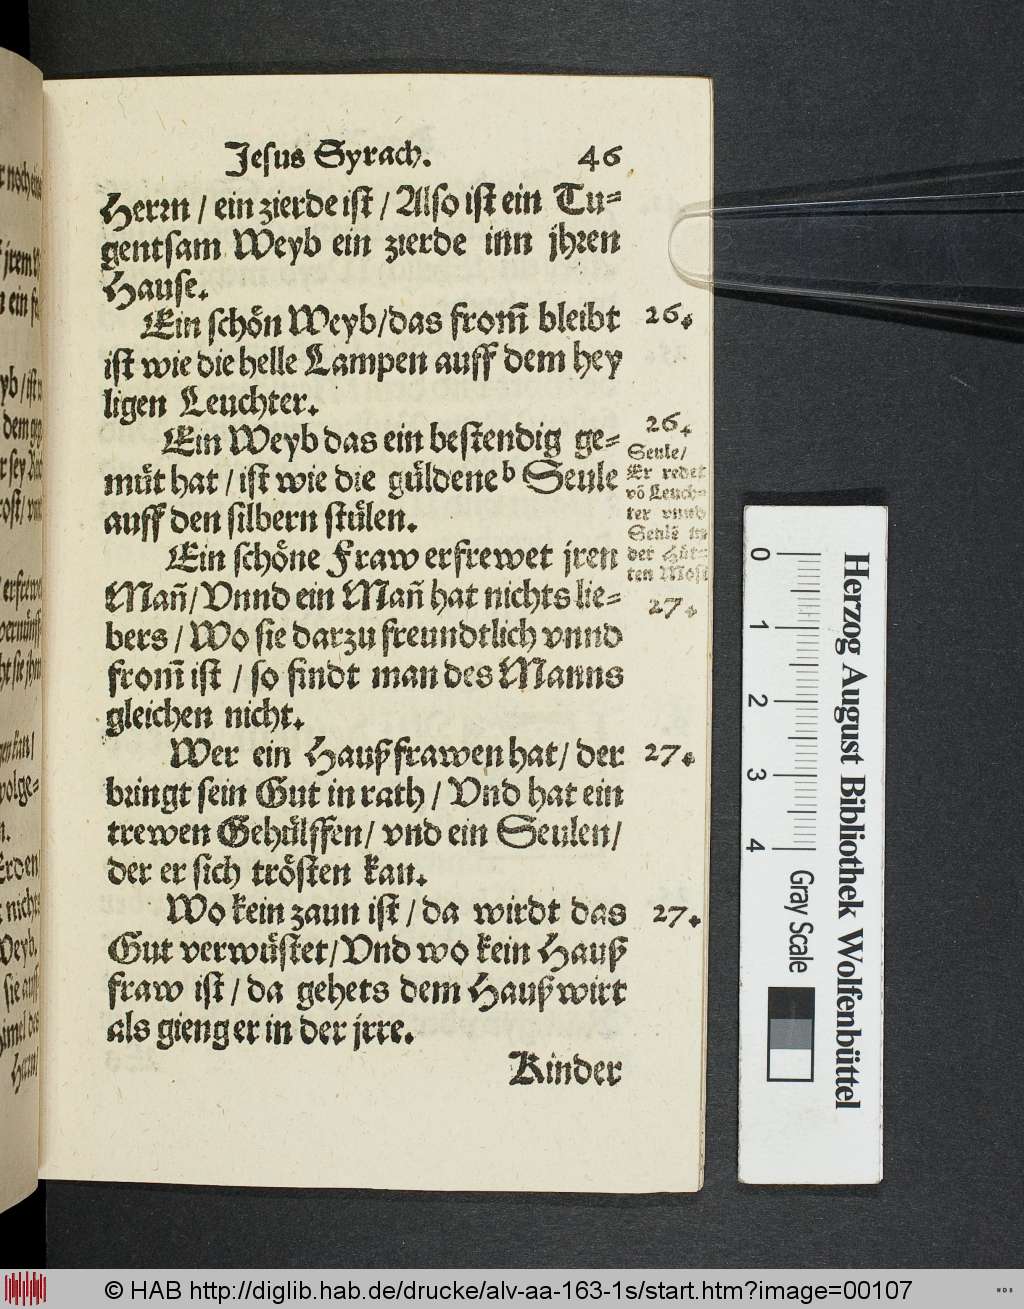 Jesus Syrach. 46
Herrn / ein zierde ist / Also ist ein Tu⸗
gentsam Weyb ein zierde inn jhren
Hause.
Ein schön Weyb/das from̃ bleibt 26.
ist wie die helle Lampen auff dem hey
ligen Leuchter.
Ein Weyb das ein bestendig ge⸗ 26.
müt hat / ist wie die güldene b Seule
auff den silbern stülen.
Seule/
Er redet
võ Leuch⸗
ter vnnd
Seulẽ in
der Hüt⸗
ten Mosi
Ein schöne Fraw erfrewet jren
Mañ/Vnnd ein Mañ hat nichts lie⸗ 27.
bers / Wo sie darzu freundtlich vnnd
from̃ ist / so findt man des Manns
gleichen nicht.
Wer ein Haußfrawen hat/ der 27.
bringt sein Gut in rath / Vnd hat ein
trewen Gehülffen/ vnd ein Seulen/
der er sich trösten kan.
Wo kein zaun ist / da wirdt das 27.
Gut verwüstet/Vnd wo kein Hauß
fraw ist / da gehets dem Haußwirt
als gieng er in der jrre.
Kinder
0 1 2 3 4
Herzog August Bibliothek Wolfenbüttel
Gray Scale
© HAB http://diglib.hab.de/drucke/alv-aa-163-1s/start.htm?image=00107